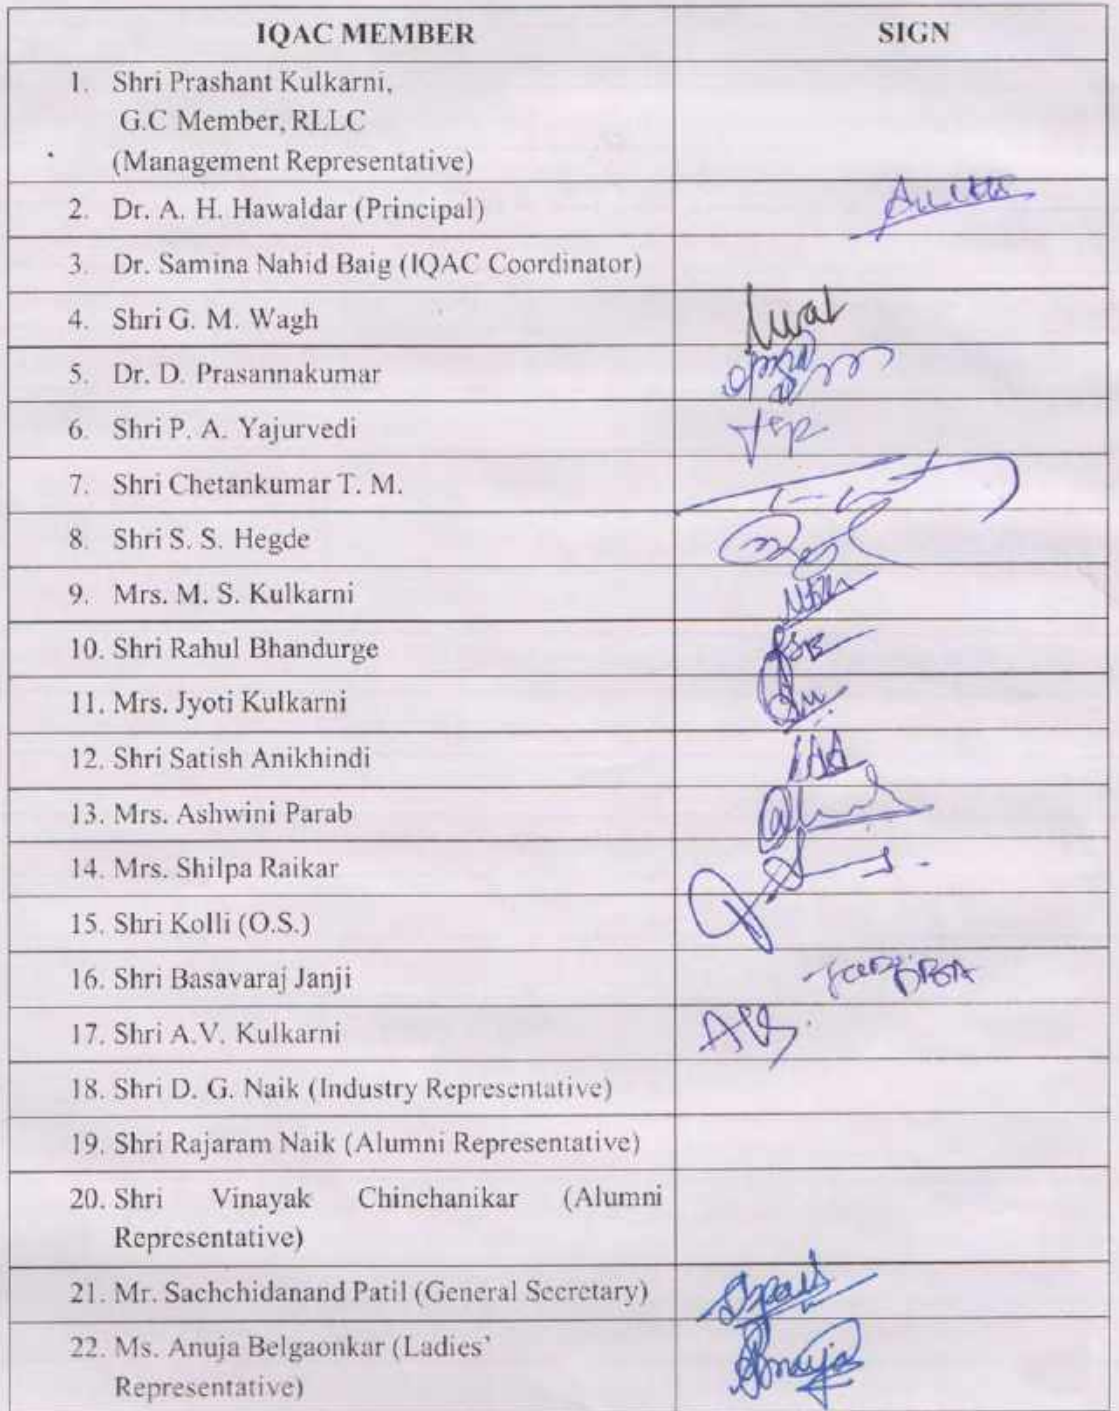 IQAC MEMBER SIGN
1. Shri Prashant Kulkarni,
G.C Member, RLLC
(Management Representative)
2. Dr. A. H. Hawaldar (Principal)
3. Dr. Samina Nahid Baig (IQAC Coordinator)
4. Shri G. M. Wagh
5. Dr. D. Prasannakumar
6. Shri P. A. Yajurvedi
7. Shri Chetankumar T. M.
8. Shri S. S. Hegde
9. Mrs. M. S. Kulkarni
10. Shri Rahul Bhandurge
11. Mrs. Jyoti Kulkarni
12. Shri Satish Anikhindi
13. Mrs. Ashwini Parab
14. Mrs. Shilpa Raikar
15. Shri Kolli (O.S.)
16. Shri Basavaraj Janji
17. Shri A.V. Kulkarni
18. Shri D. G. Naik (Industry Representative)
19. Shri Rajaram Naik (Alumni Representative)
20. Shri Vinayak Chinchanikar (Alumni
Representative)
21. Mr. Sachchidanand Patil (General Secretary)
22. Ms. Anuja Belgaonkar (Ladies'
Representative)